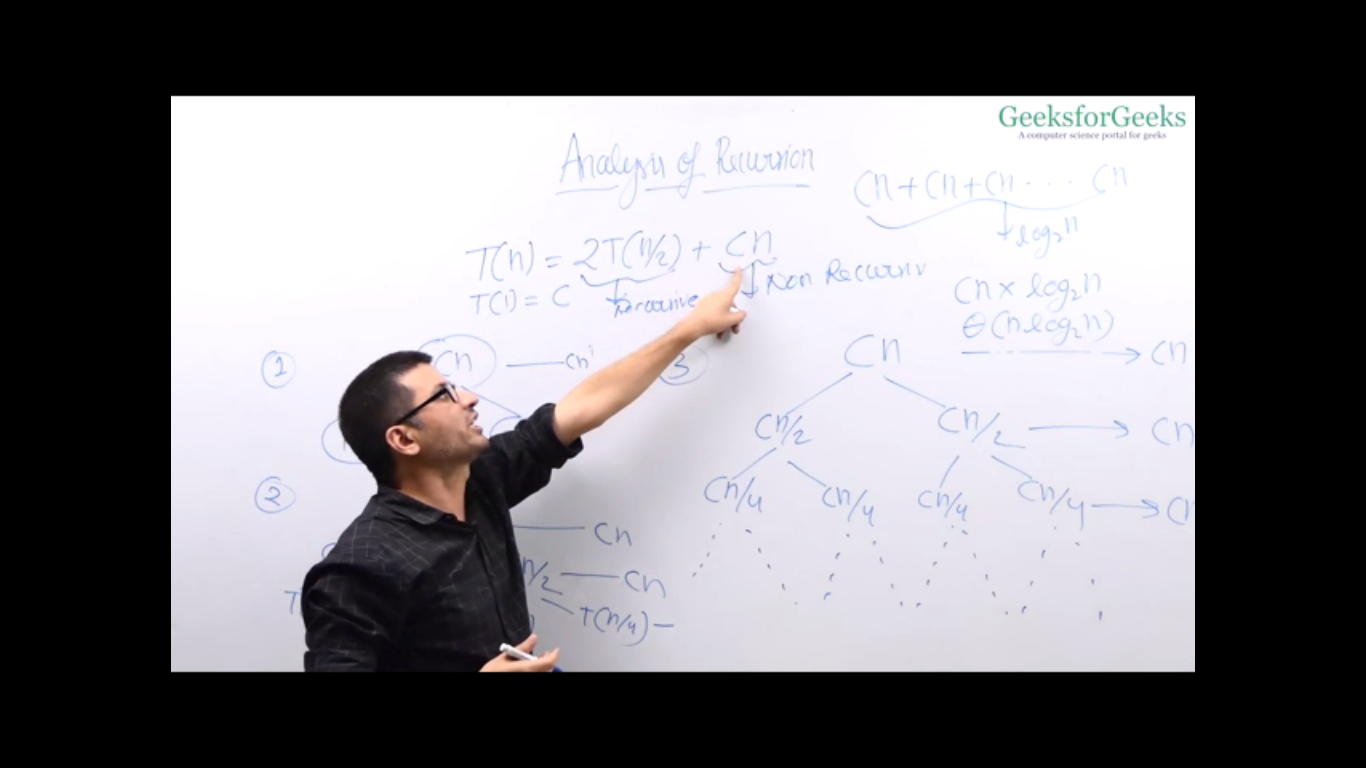 GeeksforGeeks
A computer science portal for geeks
Analysis of Recursion
Cn + Cn + Cn . . . . Cn
log₂n
T(n) = 2T(n/2) + Cn
T(1) = C
Recursive
Non Recursiv
Cn × log₂n
θ(n log₂n)
1
Cn — Cn
3
Cn → Cn
Cn/2 Cn/2 → Cn
2
Cn/4 Cn/4 Cn/4 Cn/4 → Cn
— Cn
n/2 — Cn
T(n/4) —